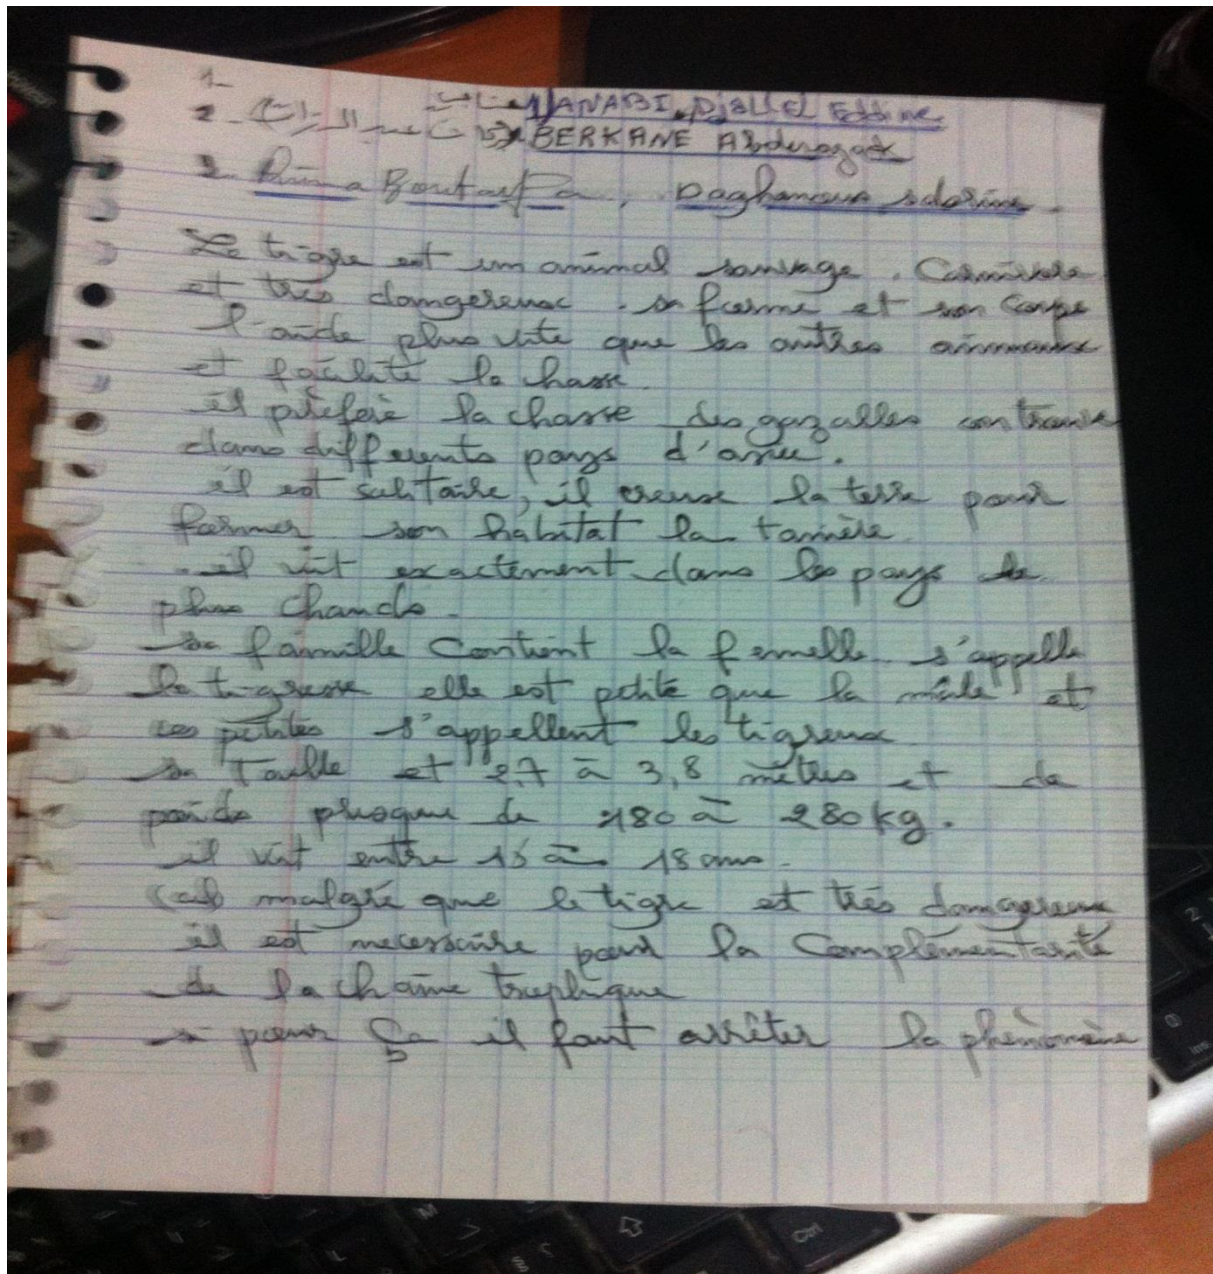 1- ANABI Djallel Eddine
2- BERKANE Abderazak
3- Rima Boutaffa, Daghamoun
Le tigre est un animal sauvage. Carnivore
et très dangereux. sa forme et son corps
l'aide plus vite que les autres animaux
et facilité la chasse.
il préfère la chasse des gazalles
dans différents pays d'asie.
il est solitaire, il creuse la terre pour
former son habitat la tanière.
il vit exactement dans les pays
plus chauds.
sa famille contient la femelle s'appelle
la tigresse elle est petite que la mâle et
ces petites s'appellent les tigreaux
sa taille et 2,7 à 3,8 mètres et de
poids presque de 180 à 280 kg.
il vit entre 15 à 18 ans.
malgré que le tigre et très dangereux
il est necessaire pour la complémentarité
de la chaîne trophique
pour ça il faut arrêter la phénomène